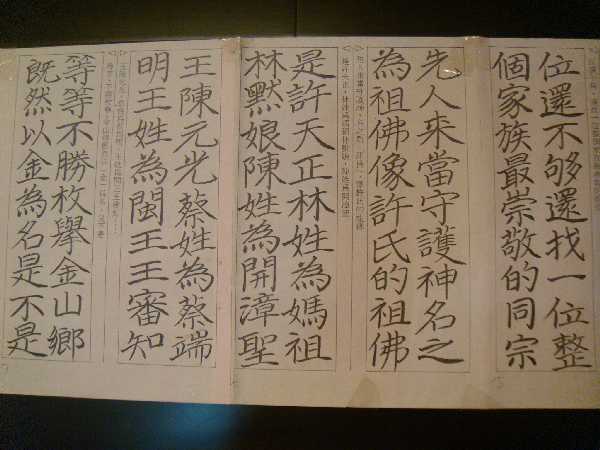 位還不够還找一位整
個家族最崇敬的同宗
先人來當守護神名之
為祖佛像許氏的祖佛
是許天正林姓為媽祖
林默娘陳姓為開漳聖
王陳元光蔡姓為蔡端
明王姓為閩王王審知
等等不勝枚舉金山鄉
既然以金為名是不是